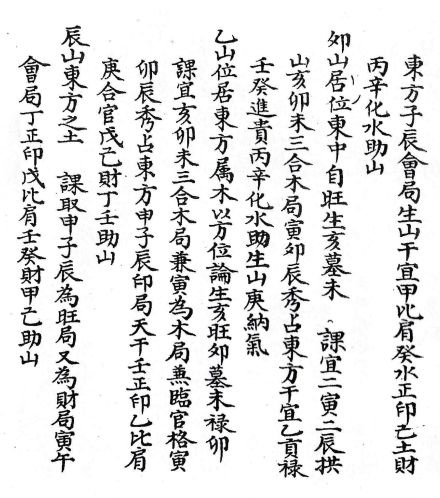 東方子辰會局生山干宜甲比肩癸水正印己土財
丙辛化水助山
卯山居位東中自旺生亥墓未 課宜二寅二辰拱
山亥卯未三合木局寅卯辰秀占東方干宜乙貢祿
壬癸進貴丙辛化水助生山庚納氣
乙山位居東方属木以方位論生亥旺卯墓未祿卯
課宜亥卯未三合木局兼寅為木局無臨官格寅
卯辰秀占東方申子辰印局天干壬正印乙比肩
庚合官戊己財丁壬助山
辰山東方之土 課取申子辰為旺局又為財局寅午
會局丁正印戊比肩壬癸財甲己助山